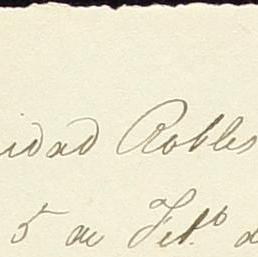 idad Robles
5 de Feb.º d